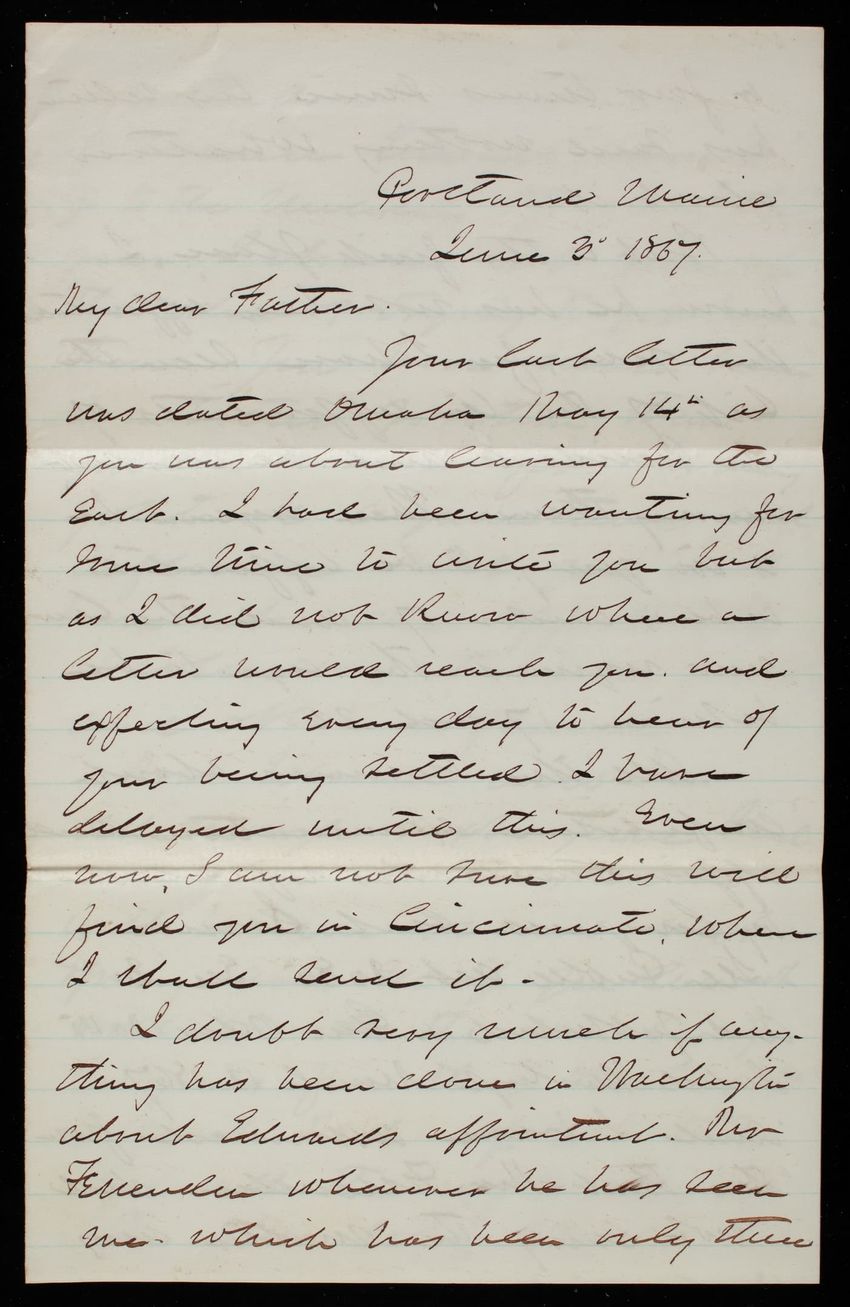 Portland Maine
June 3d 1867.
My dear Father.
Your last letter
was dated Omaha May 14th as
you was about leaving for the
East. I had been wanting for
some time to write you but
as I did not know where a
letter would reach you. and
expecting every day to hear of
your being settled I have
delayed until this. Even
now, I am not sure this will
find you in Cincinnati, where
I shall send it -
I doubt very much if any-
thing has been done in Washington
about Edwards appointment. Mr
Fessenden whenever he has seen
me - which has been only three